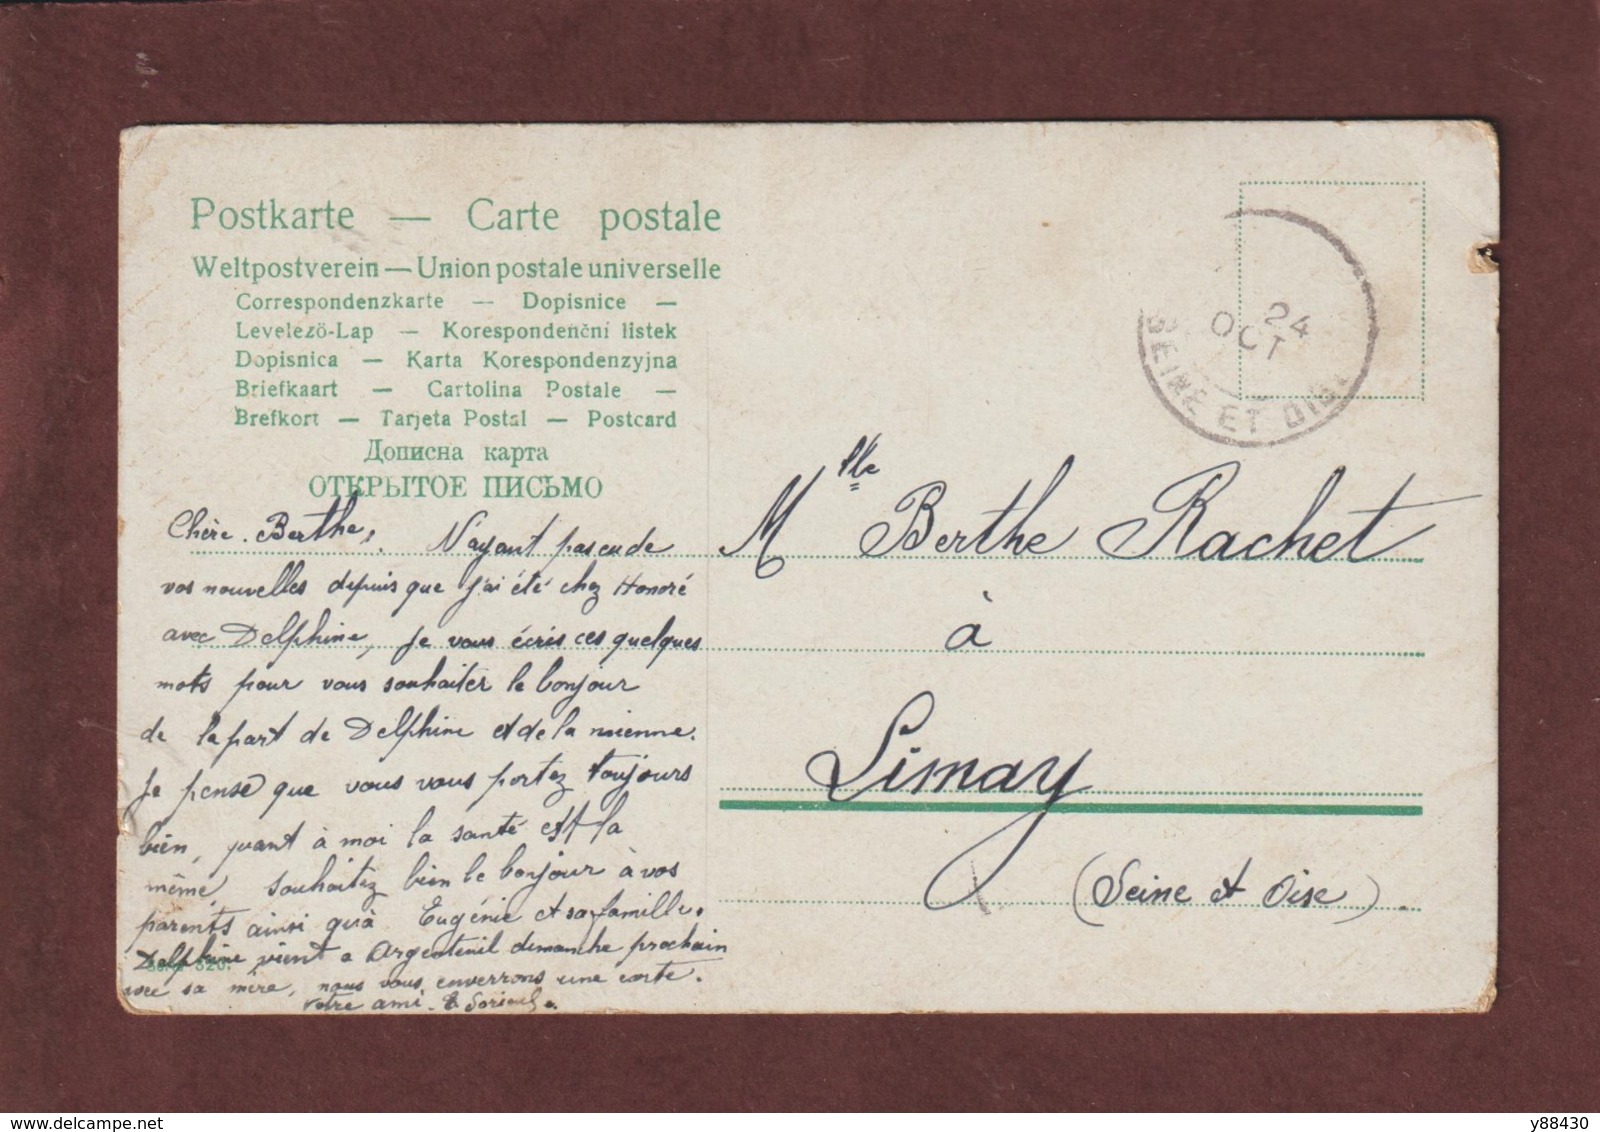 Postkarte — Carte postale
Weltpostverein — Union postale universelle
Correspondenzkarte — Dopisnice —
Levelező-Lap — Korespondenční listek
Dopisnica — Karta Korespondenzyjna
Briefkaart — Cartolina Postale —
Brefkort — Tarjeta Postal — Postcard
Дописна карта
ОТКРЫТОЕ ПИСЬМО
24
OCT
SEINE ET OISE
Chère Berthe, N'ayant pas eu de
vos nouvelles depuis que j'ai été chez Honoré
avec Delphine, je vous écris ces quelques
mots pour vous souhaiter le bonjour
de la part de Delphine et de la mienne.
Je pense que vous vous portez toujours
bien, quant à moi la santé est la
même, souhaitez bien le bonjour à vos
parents ainsi qu'à Eugénie et sa famille.
Delphine vient a Argenteuil dimanche prochain
avec sa mère, nous vous enverrons une carte.
Votre ami. E
Serie 320.
Mlle Berthe Rachet
à
Limay
(Seine et Oise).
delcampe.net
y88430